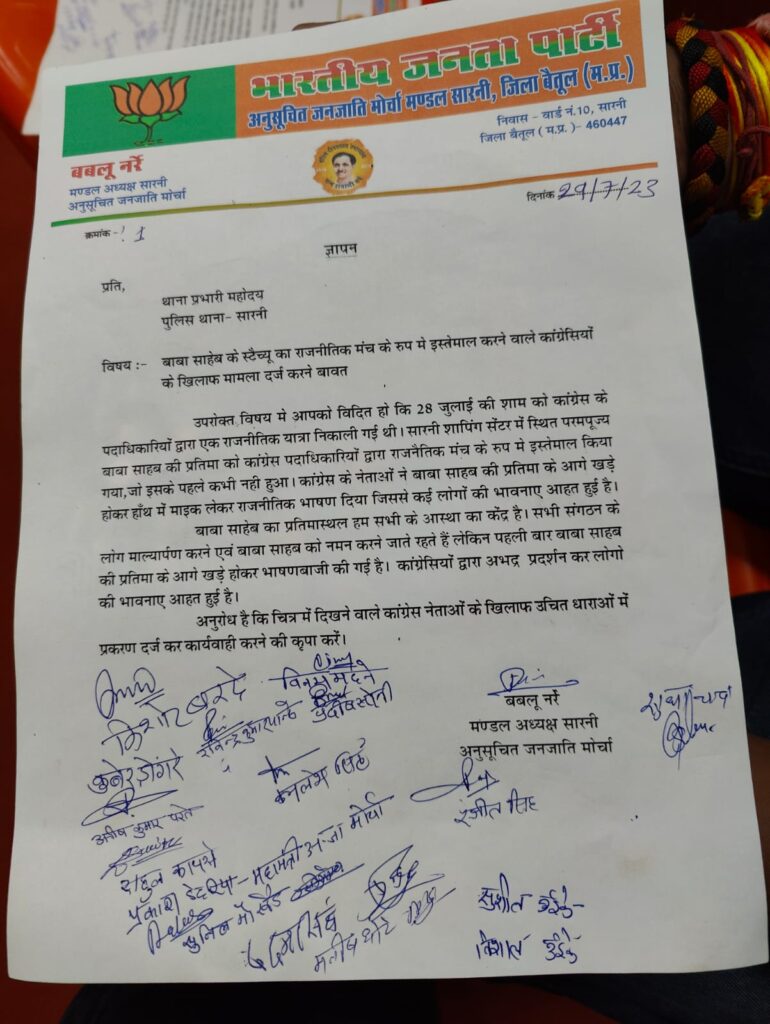 भारतीय जनता पार्टी
अनुसूचित जनजाति मोर्चा मण्डल सारनी, जिला बैतूल (म.प्र.)
निवास - वार्ड नं.10, सारनी
जिला बैतूल ( म.प्र. )- 460447
बबलू नर्रे
मण्डल अध्यक्ष सारनी
अनुसूचित जनजाति मोर्चा
दिनांक 29/7/23
क्रमांक -! 1
ज्ञापन
प्रति,
थाना प्रभारी महोदय
पुलिस थाना- सारनी
विषय :- बाबा साहेब के स्टैच्यू का राजनीतिक मंच के रुप मे इस्तेमाल करने वाले कांग्रेसियों
के खिलाफ मामला दर्ज करने बावत
उपरोक्त विषय मे आपको विदित हो कि 28 जुलाई की शाम को कांग्रेस के
पदाधिकारियों द्वारा एक राजनीतिक यात्रा निकाली गई थी। सारनी शापिंग सेंटर में स्थित परमपूज्य
बाबा साहब की प्रतिमा को कांग्रेस पदाधिकारियों द्वारा राजनैतिक मंच के रुप मे इस्तेमाल किया
गया,जो इसके पहले कभी नही हुआ। कांग्रेस के नेताओं ने बाबा साहब की प्रतिमा के आगे खड़े
होकर हाँथ में माइक लेकर राजनीतिक भाषण दिया जिससे कई लोगों की भावनाए आहत हुई है।
बाबा साहेब का प्रतिमास्थल हम सभी के आस्था का केंद्र है। सभी संगठन के
लोग माल्यार्पण करने एवं बाबा साहब को नमन करने जाते रहते हैं लेकिन पहली बार बाबा साहब
की प्रतिमा के आगे खड़े होकर भाषणबाजी की गई है। कांग्रेसियों द्वारा अभद्र प्रदर्शन कर लोगो
की भावनाए आहत हुई है।
अनुरोध है कि चित्र में दिखने वाले कांग्रेस नेताओं के खिलाफ उचित धाराओं में
प्रकरण दर्ज कर कार्यवाही करने की कृपा करें।
किशोर बरदे
बबलू नर्रे
मण्डल अध्यक्ष सारनी
अनुसूचित जनजाति मोर्चा
कुबेर डोंगरे
कमलेश सिंह
रंजीत सिंह
राहुल कापसे
प्रकाश डेहरिया - महामंत्री अ.जा मोर्चा
सुशील उईके
विशाल उईके